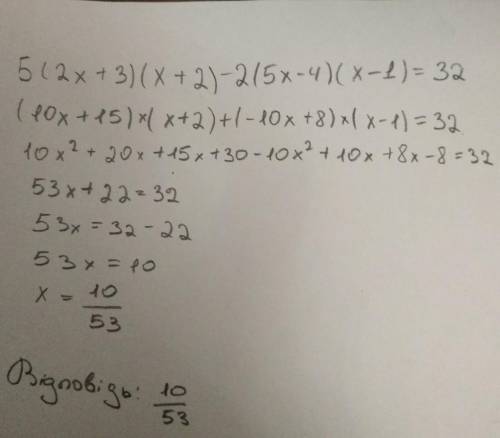 5(2x+3)(x+2)-2(5x-4)(x-1)=32
(10x+15)×(x+2)+(-10x+8)×(x-1)=32
10x²+20x+15x+30-10x²+10x+8x-8=32
53x+22=32
53x=32-22
53x=10
x=10/53
Відповідь: 10/53